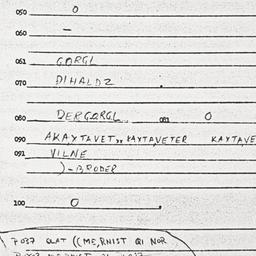 050 O
060 –
061 GORGL
070 DIHALDZ .
080 DERGORGL 081 O
090 AKAYTAVET,, KAYTAVETER KAYTAVE
091 VILNE
)-BRODER
100 O .
7037 OLAT ((ME,RNIST QI NOR